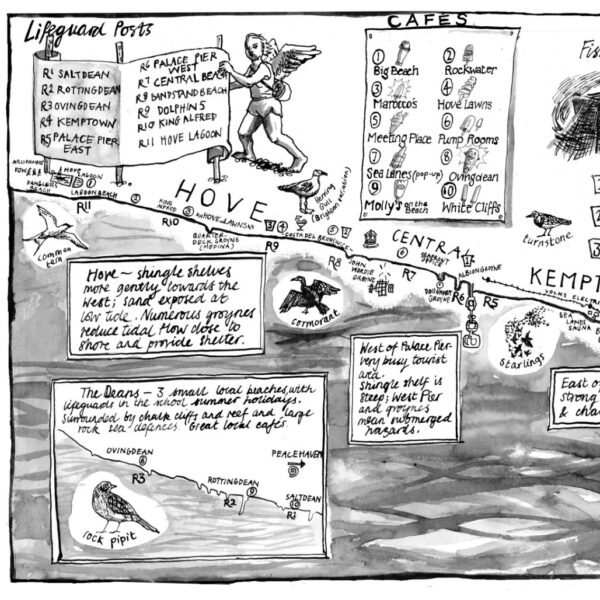 Lifeguard Posts
R1 SALTDEAN
R2 ROTTINGDEAN
R3 OVINGDEAN
R4 KEMPTOWN
R5 PALACE PIER
EAST
R6 PALACE PIER
WEST
R7 CENTRAL BEACH
R8 BANDSTAND BEACH
R9 DOLPHINS
R10 KING ALFRED
R11 HOVE LAGOON
CAFÉS
1
Big Beach
2
Rockwater
3
Marrocco's
4
Hove Lawns
5
Meeting Place
6
Pump Rooms
7
Sea Lanes (pop-up)
8
Ovingdean
9
Molly's on the
Beach
10
White Cliffs
HOVE
LAGOON
LAGOON BEACH
R11
2
KING
ALFRED
R10
3
HOVE LAWNS
QUARTER
DECK GROYNE
(MEDINA)
HOVE
4
R9
Herring
Gull
(Brighton variation)
5
R8
JOHN
WORDIE
GROYNE
R7
CENTRAL
ALBION GROYNE
DOUGHNUT
GROYNE
R6
R5
KEMPT
VOLKS ELECTRI
SEA
LANES
SAUNA
Fis
turnstone
1
2
3
common
tern
cormorant
starlings
Hove ~ shingle shelves
more gently towards the
West; sand exposed at
low tide. Numerous groynes
reduce tidal flow close to
shore and provide shelter.
West of Palace Pier-
very busy tourist
area.
Shingle shelf is
steep; West Pier
and groynes
mean submerged
hazards.
East o
strong
& cha
The Deans - 3 small local beaches, with
lifeguards in the school summer holidays.
Surrounded by chalk cliffs and reef and large
rock sea defences. Great local cafés.
OVINGDEAN
8
R3
ROTTINGDEAN
9
R2
PEACEHAVEN
SALTDEAN
10
R1
rock pipit